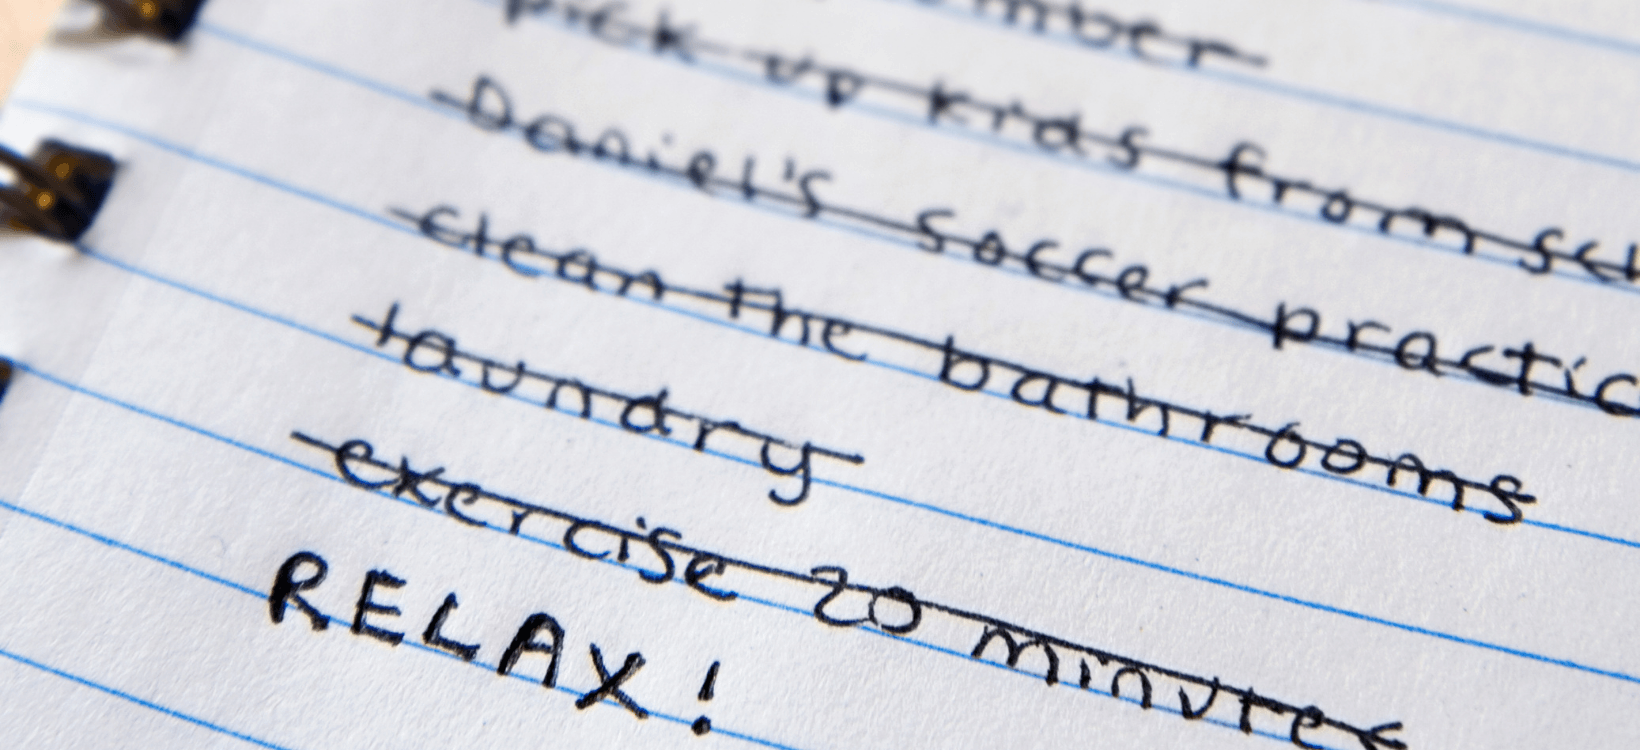 pick up kids from sch
Daniel's soccer practic
clean the bathrooms
laundry
exercise 20 minutes
RELAX!